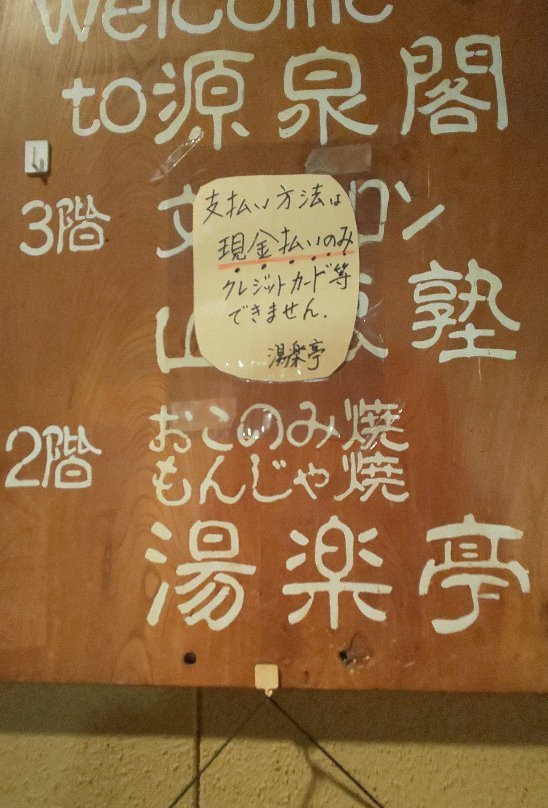 Welcome
to源泉閣
3階
支払い方法は
現金払いのみ
クレジットカード等
できません.
湯楽亭
塾
2階
おこのみ焼
もんじゃ焼
湯楽亭